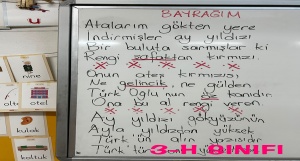 BAYRAĞIM
Atalarım gökten yere
İndirmişler ay yıldızı
Bir buluta sarmışlar ki
Rengi şafaktan kırmızı.
Onun ateş kırmızısı
Ne gelincik, ne gülden
Türk Oğlu'nun kanıdır
Ona bu al rengi veren
Ay yıldızı gökyüzünün
Ayla yıldızdan yüksek
Türk'ün alın yazısıdır
Türk'tür
3-H SINIFI
u
nine
olta
otel
kulak
kutu